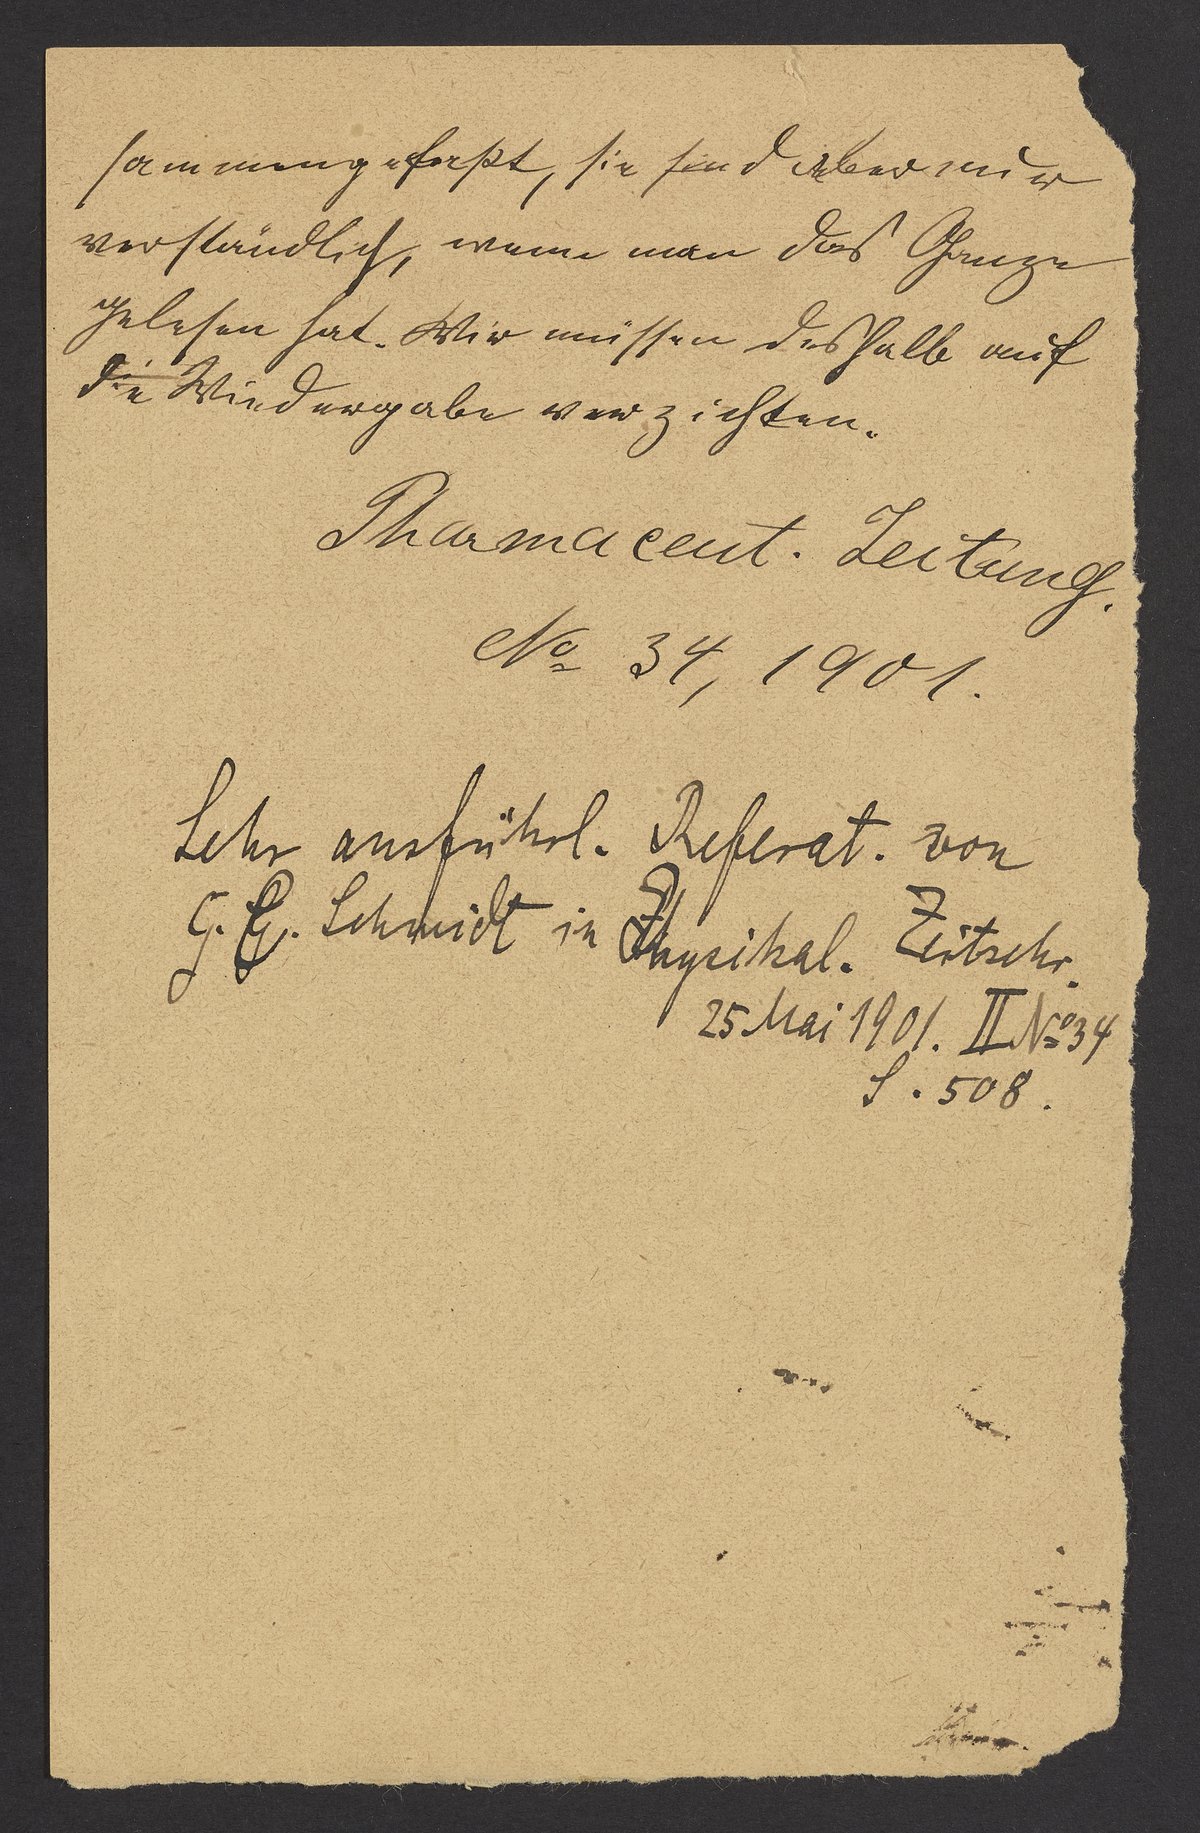 sammengefaßt, sie sind aber nur
verständlich, wenn man das Ganze
gelesen hat. Wir müssen deshalb auf
die Wiedergabe verzichten.
Pharmaceut. Zeitung.
No 34, 1901.
Sehr ausführl. Referat. von
G. C. Schmidt in Physikal. Zeitschr.
25 Mai 1901. II No 34
S. 508.